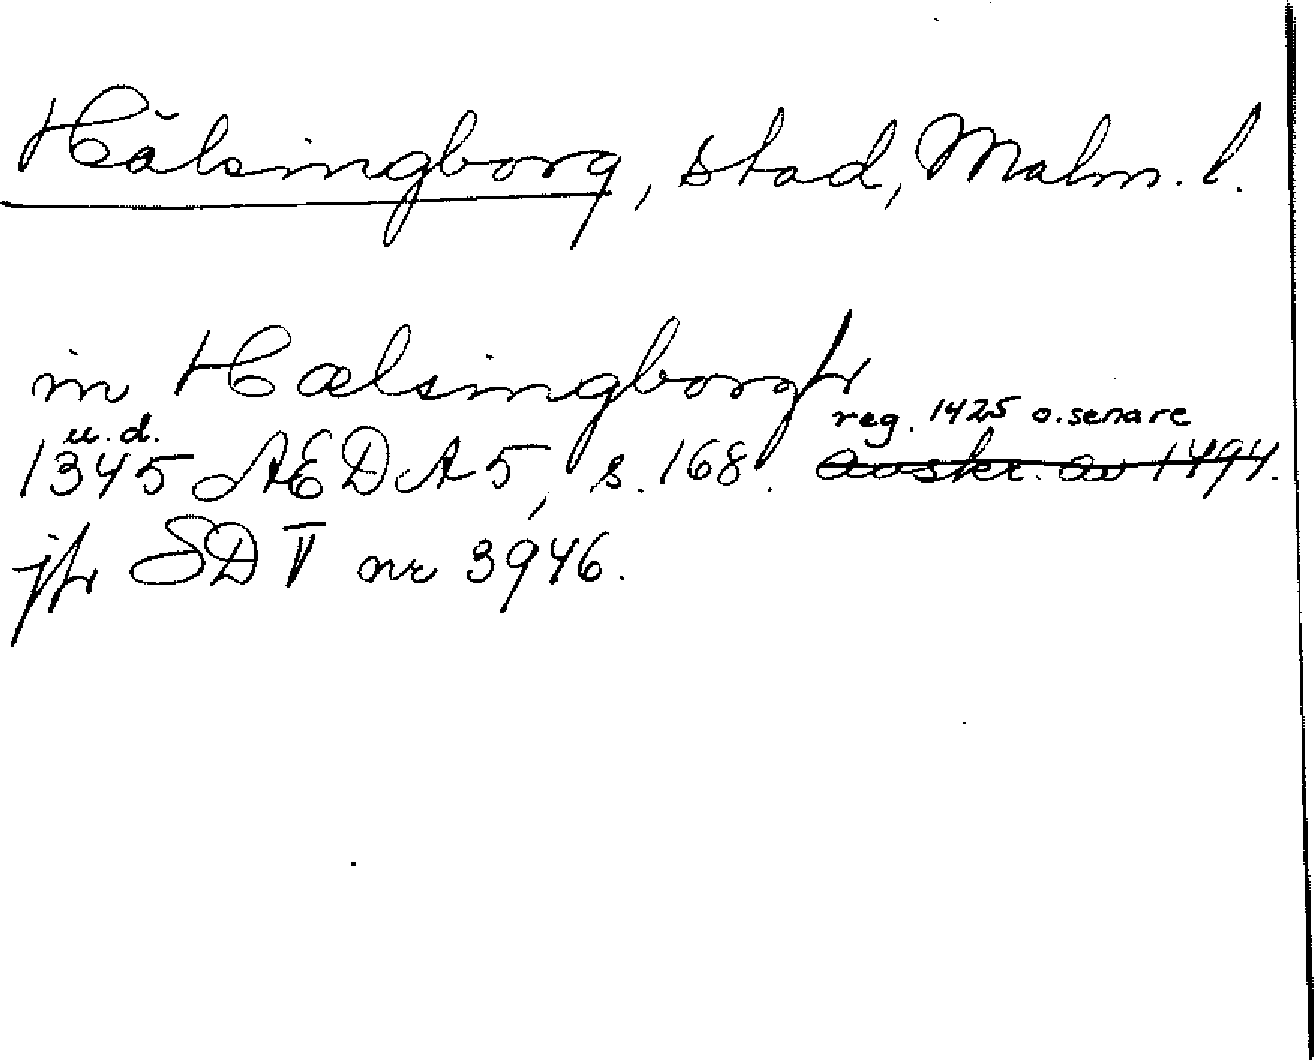 Hälsingborg, stad, Malm. l.
in Hælsingborgh
u. d. reg. 1425 o. senare
1345 AEDA 5, s. 168. avskr. av 1494.
jfr SD V nr 3946.